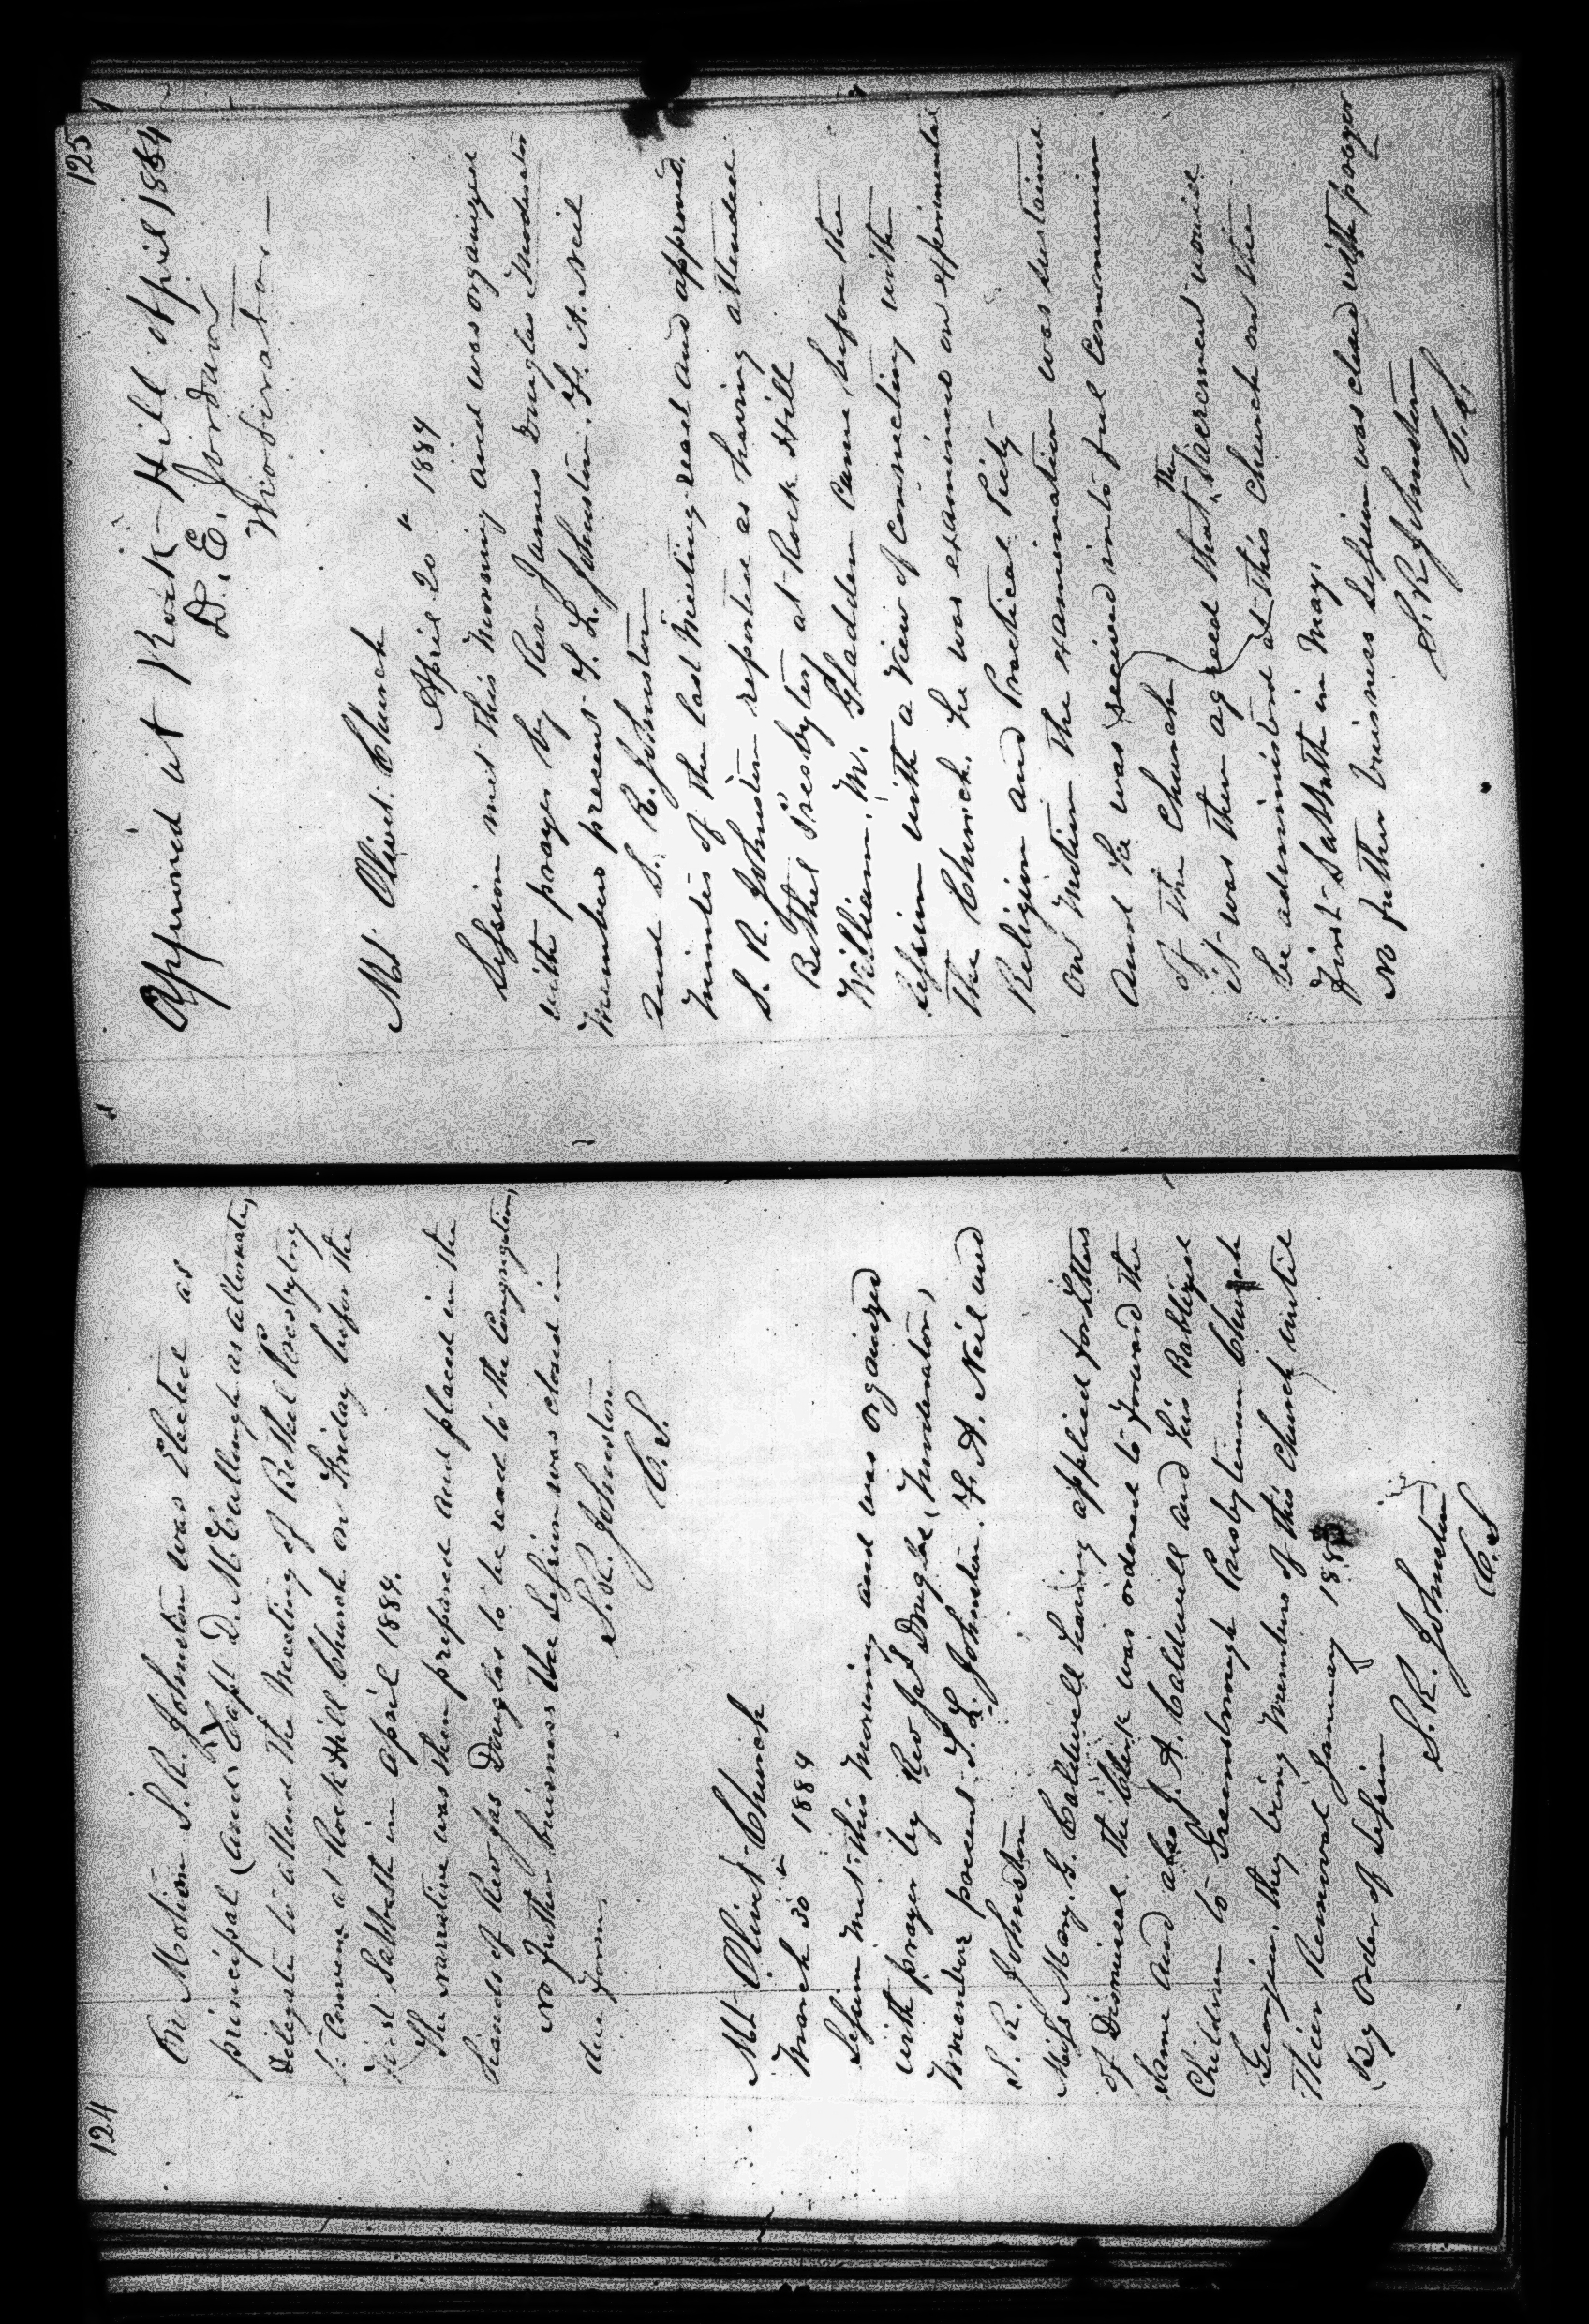 124
On Motion S. R. Johnston was Elected as
principal (and Capt D. McCullough as alternate,
Delegate to attend the Meeting of Bethel Presbytery
to Convene at Rock Hill Church on Friday befor the
first Sabbath in April 1884.
The narrative was then prepared and placed in the
hands of Rev Jas Douglas to be read to the Congregation,
No further business the Session was closed in
due form.
S. R. Johnston
C. S.
Mt Olivet Church
March 30th 1884
Session met this Morning and was organized
with prayer by Rev Jas Douglas, Moderator,
Members present T. L. Johnston. F. A. Neil and
S. R. Johnston
Miss Mary. G. Caldwell having applied for Letters
of Dismissal the Clerk was ordered to forward the
same and also J. A. Caldwell and his Babtized
Children to Greensborough Presbyterian Church
Georgia. they being Members of this Church until
Thier Removal January 188
By order of Session
S. R. Johnston
C. S
125
Approved at Rock-Hill April 1884
D. E. Jordan
Moderator—
Mt Olivet. Church
April 20th 1884
Session met this Morning and was organized
with prayer by Rev James Douglas Moderator
Members present T. L. Johnston. F. A. Neil
and S. R. Johnston
Minutes of the last Meeting read and approved.
S. R. Johnston reported as having attended
Bethel Presbytery at Rock Hill
William. M. Gladden Came before the
Session with a View of Connecting with
The Church. he was examined on experimental
Religion and Practical Piety
On Motion the examination was sustained
And he was received into full Communion
of the Church.
it was then agreed that the Sacrement would
be administered at this Church on the
First Sabbath in May.
No further business Session was closed with prayer
S. R. Johnston
C. S.